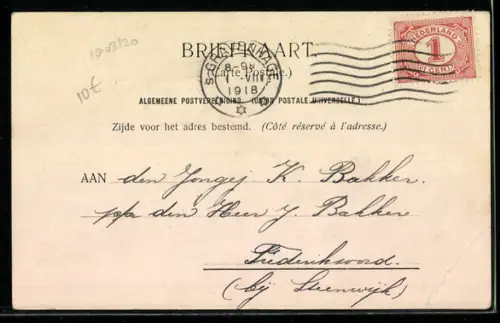 1903/20
10€
BRIEFKAART.
(Carte Postale.)
'S-GRAVENHAGE
8-9N
VIII
1918
NEDERLAND
1
CENT
ALGEMEENE POSTVEREENIGING (UNION POSTALE UNIVERSELLE.)
Zijde voor het adres bestemd. (Côté réservé à l'adresse.)
AAN den Jongej K. Bakker.
p/a den Heer J. Bakker
Frederiksoord.
(bij Steenwijk)